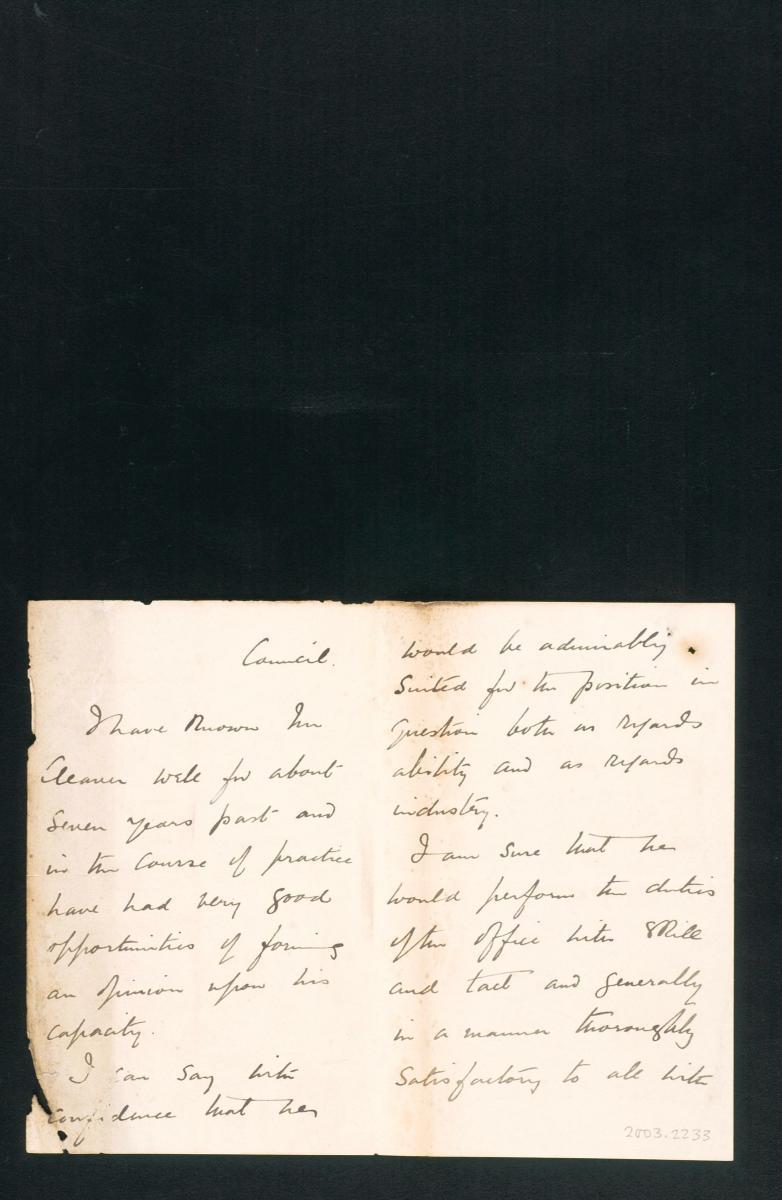 Council.
I have known Mr
Cleaver well for about
seven years past and
in the course of practice
have had very good
opportunities of forming
an opinion upon his
capacity.
I can say with
confidence that he
would be admirably
suited for the position in
question both as regards
ability and as regards
industry.
I am sure that he
would perform the duties
of the office with skill
and tact and generally
in a manner thoroughly
satisfactory to all with
2003.2233